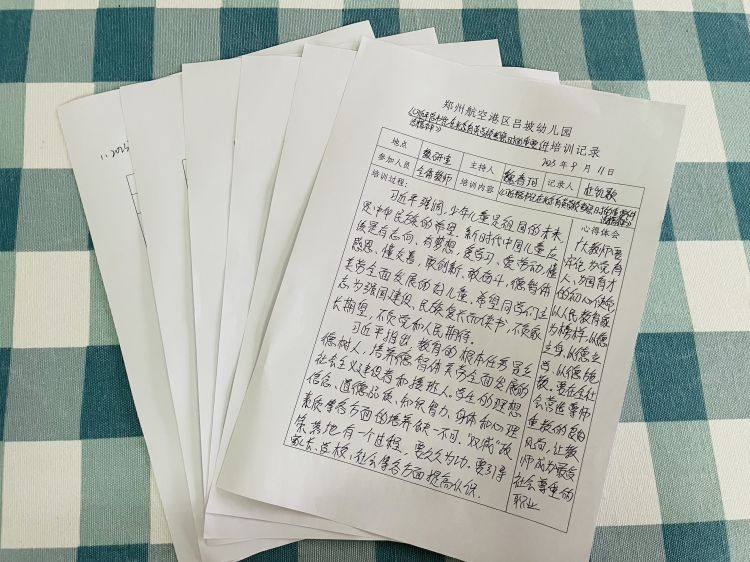 郑州航空港区吕坡幼儿园
培训记录
2023年9月11日
地点 教研室 主持人 记录人
参加人员 全体教师 培训内容
培训过程:
习近平强调,少年儿童是祖国的未来
是中华民族的希望。新时代中国儿童应
该是有志向、有梦想,爱学习、爱劳动,懂
感恩、懂友善,敢创新、敢奋斗,德智体
美劳全面发展的好儿童。希望同学们立
志为强国建设、民族复兴而读书,不负家
长期望,不负党和人民期待。
习近平指出,教育的根本任务是立
德树人,培养德智体美劳全面发展的
社会主义建设者和接班人。学生的理想
信念、道德品质、知识智力、身体和心理
素质等各方面的培养缺一不可。"双减"政
策落地有一个过程,要久久为功。要引导
家长、学校、社会等各方面提高认识。
心得体会
广大教师要
牢记为党育
人、为国育才
的初心使命
以人民教育家
为榜样,以德
立身、以德立
学、以德施
教。要在全社
会营造尊师
重教的良好
风尚,让教
师成为最受
社会尊重的
职业
11.2023